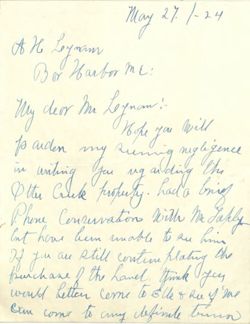 May 27th - 24
A H Lynam
Bar Harbor Me:
My dear Mr Lynam:-
Hope you will
pardon my seeming negligence
in writing you regarding the
Otter Creek property. had a brief
Phone Conversation With Mr
but have been unable to see him
If you are still contemplating the
purchase of the Land think you
would better come to & see if we
Can come to any definite